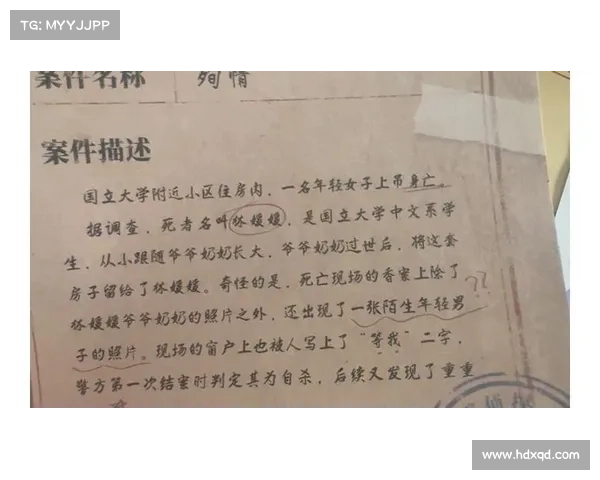 TG: MYYJJPP
案件名称 殉情
案件描述
国立大学附近小区住房内，一名年轻女子上吊身亡。
据调查，死者名叫林媛媛，是国立大学中文系学
生，从小跟随爷爷奶奶长大，爷爷奶奶过世后，将这套
房子留给了林媛媛。奇怪的是，死亡现场的香案上除了
林媛媛爷爷奶奶的照片之外，还出现了一张陌生年轻男
子的照片。现场的窗户上也被人写上了“等我”二字，
警方第一次结案时判定其为自杀，后续又发现了重重
??
www.hdxqd.com